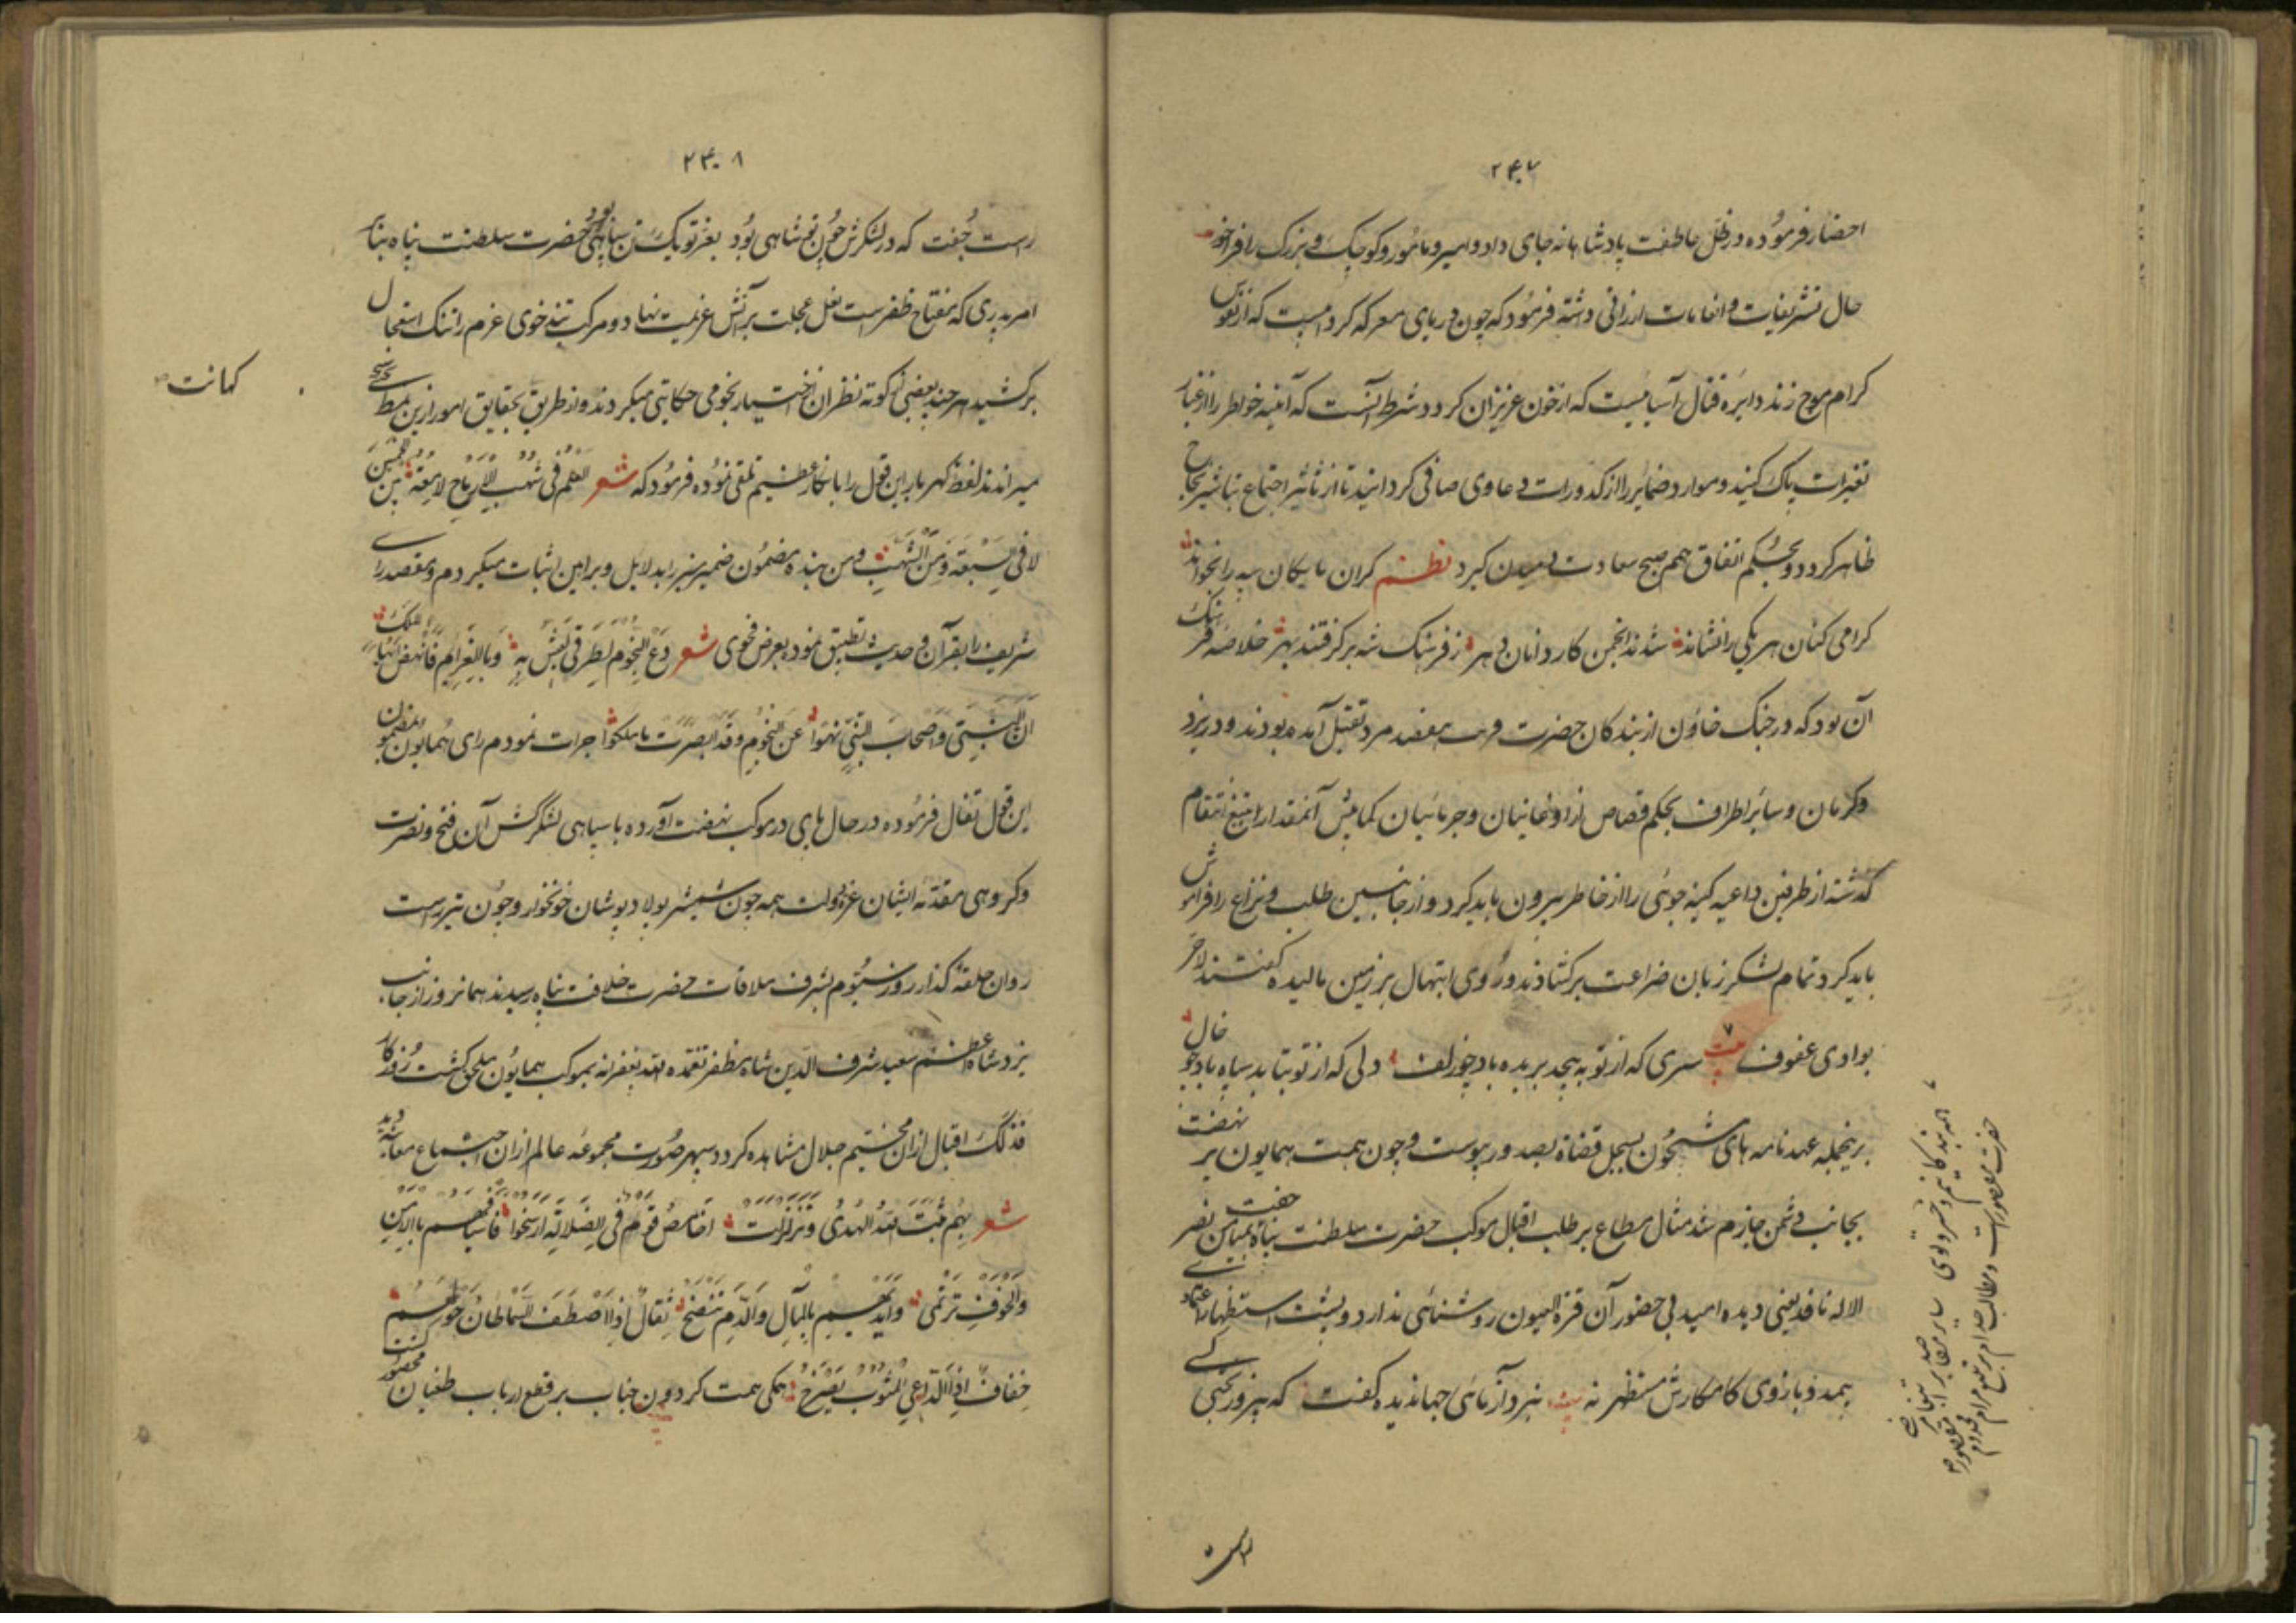 ۲۴۰۷
احضار فرموده در ظل عاطفت پادشاهانه جای داد و امیر و مأمور و کوچک و بزرگ را فراخور
حال تشریفات و انعامات ارزانی داشته فرمود که چون دریای معرکه کرد که از نفوس
کرام موج زند دایره قتال آسیایست که از خون عزیزان گردد شرط آنست که آینه خواطر را از غبار
تغیرات پاک کنید و موارد ضمایر را از کدورات دعاوی صافی گردانید تا از تأثیر اجتماع تباشیر نجاح
ظاهر گردد و بحکم اتفاق هم صبح سعادت دمیدن گیرد نظم گران مایگان سپه را بخواند
گرامی کنان هر یکی را نشاند شدند انجمن کاردانان دهر ز فرهنگ شه برگرفتند بهر خلاصه
آن بود که در جنگ خاون از بندگان حضرت قرب هفصد مرد بقتل آمده بودند و در یزد
و کرمان و سایر اطراف بحکم قصاص از اوغانیان و جرمائیان کمابیش آنمقدار را بتیغ انتقام
گذشته از طرفین داعیه کینه جوئی را از خاطر بیرون باید کرد و از جانبین طلب و نزاع را فراموش
باید کرد تمام لشکر زبان ضراعت برگشادند و روی ابتهال بر زمین مالیده گفتند لاجر
بوادی عفوف بیت سری که از تو بپیچد بریده باد چو زلف دلی که از تو بتابد سیاه باد چو خال
برینجمله عهدنامه های مشحون بسجل قضاة بصدور پیوست و چون همت همایون بر نهضت
بجانب دشمن جازم شد مثال مطاع بر طلب اقبال موکب حضرت سلطنت پناه
الاله نافد یعنی دیده امید بی حضور آن قرة العیون روشنائی ندارد و پشت استظهار
بمدد بازوی کامکارش مستظهر نه بیت نبرد آزمائی جهاندیده گفت که پیروزبختی
۲۴۰۸
راست جفت که در لشکرش چون تو شاهی بود بغیر تو یک تن سپاهی بود حضرت سلطنت پناه بنابر
امر پدری که مفتاح ظفر است نعل عجلت بر آتش عزیمت نهاد و مرکب تندخوی عزم را تنگ استعجال
برکشید هر چند بعضی کوته نظران از اختیار نجومی حکایتی میکردند و از طریق تحقیق امور ازین نمط
کهانت
میراندند لفظ گهربار این قول را بانکار عظیم تلقی نموده فرمود که شعر العلم فی شهب الارماح لامعة بین الخمیسین
لا فی السبعة الشهب و من بنده مضمون ضمیر منیر را بدلایل و براهین اثبات میکردم و مقصد
شریف را بقرآن و حدیث تطبیق نموده بعرض فحوی شعر دع النجوم لطرقی یعیش به و بالعزایم فانهض ایها الملک
ان النبی و اصحاب النبی نهوا عن النجوم و قد ابصرت ما ملکوا جرات نمودم رای همایون بمضمون
این قول تفال فرموده در حال پای در موکب نهضت آورده با سپاهی لشکرکش آن فتح و نصرت
و گروهی مقدمه ایشان عز دولت همه چون شمشیر پولادپوشان خونخوار و چون تیر راست
روان حلقه گذار روز سیوم بشرف ملاقات حضرت خلافت پناه رسیدند همانروز از جانب
یزد شاه اعظم سعید شرف الدین شاه مظفر تغمده الله بغفرانه بموکب همایون ملحق گشت روزگار
فذلک اقبال از ان مخیم جلال مشاهده کرد و سپهر صورت مجموعه عالم از ان اجتماع معاینه دید
شعر بهم ثبت الله الهدی و تزلزلت اخامص قوم فی الضلالة ارسخوا فاسیافهم بالامن
والخوف ترتمی و ایدیهم بالمال والدم تنضح ثقال اذا اصطف السماطان حولهم
خفاف اذا الداعی المثوب یصرخ همگی همت گردون جناب بر قطع ارباب طغیان محصور گشت